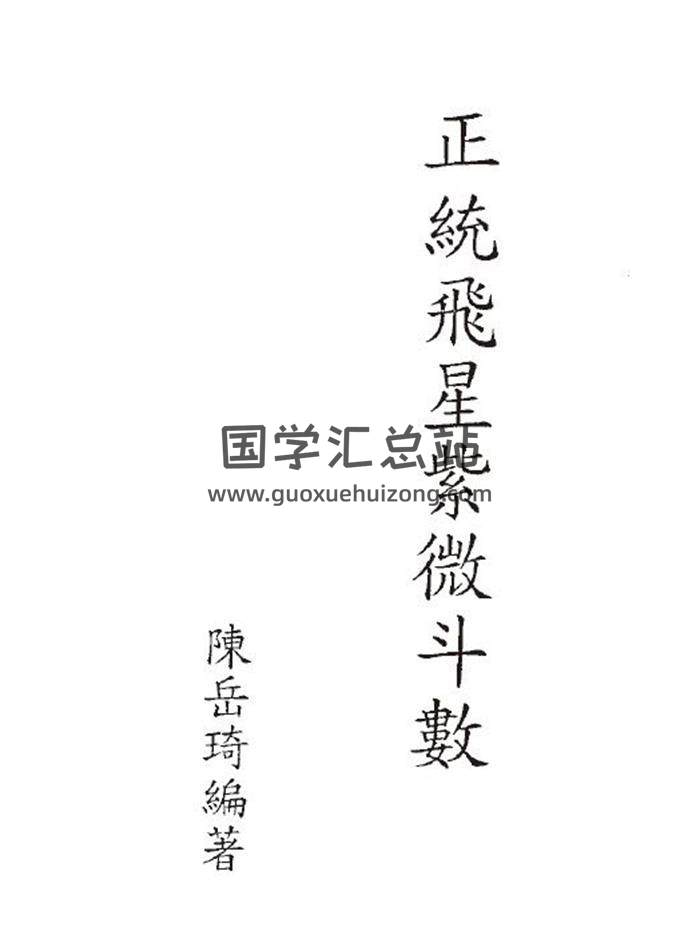 正統飛星紫微斗數
陳岳琦編著
国学汇总站
www.guoxuehuizong.com